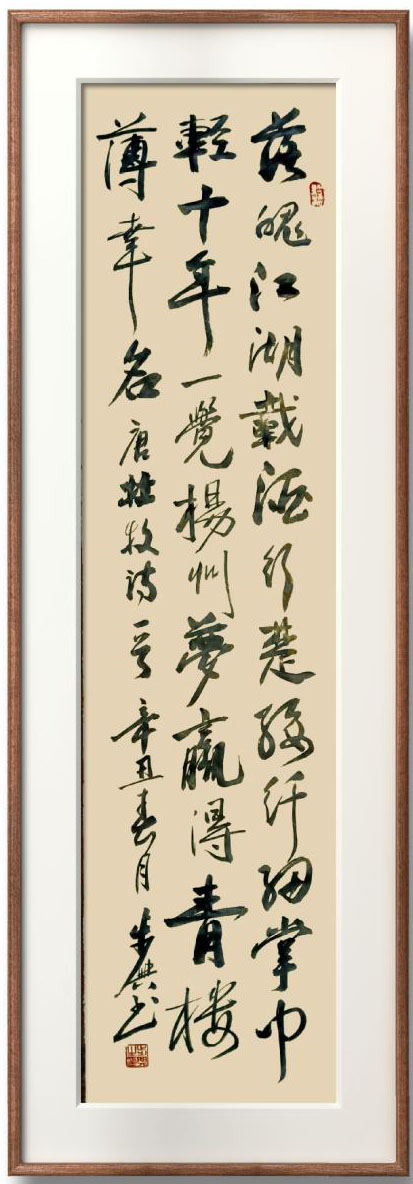 落魄江湖載酒行楚腰纤細掌中
輕十年一覺楊州夢贏得青楼
薄幸名唐杜牧诗一首辛丑春月